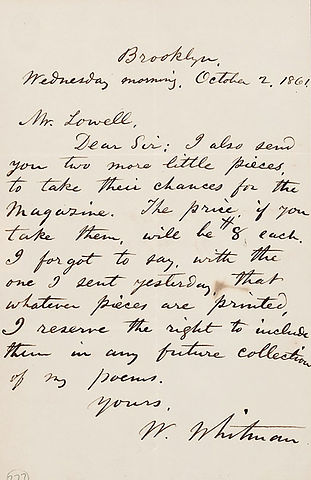 Brooklyn,
Wednesday morning, October 2, 1861
Mr. Lowell,
Dear Sir: I also send
you two more little pieces
to take their chances for the
Magazine. The price, if you
take them, will be $8 each.
I forgot to say, with the
one I sent yesterday, that
whatever pieces are printed,
I reserve the right to include
them in any future collection
of my poems.
Yours,
W. Whitman